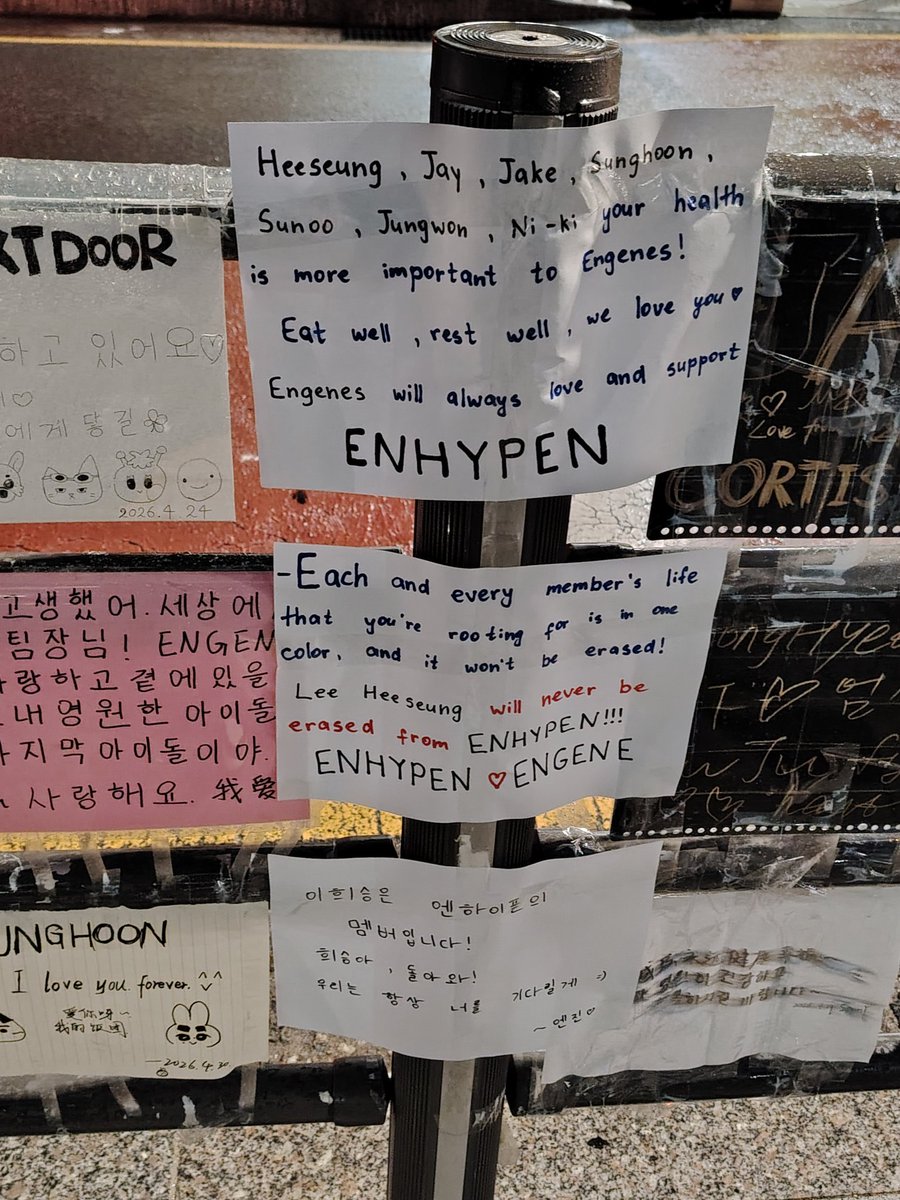 Heeseung , Jay , Jake , Sunghoon ,
Sunoo , Jungwon , Ni-ki your health
is more important to Engenes!
Eat well , rest well , we love you♡
Engenes will always love and support
ENHYPEN
XT DOOR
하고 있어요♡
에게 닿길
2026.4.24
Love from
CORTIS
-Each and every member's life
that you're rooting for is in one
color, and it won't be erased!
Lee Heeseung will never be
erased from ENHYPEN!!!
ENHYPEN ♡ ENGENE
고생했어. 세상에
팀장님! ENGEN
랑하고 곁에 있을
내 영원한 아이돌
지막 아이돌이야.
사랑해요. 我愛
이희승은 엔하이픈의
멤버입니다!
희승아 , 돌아와!
우리는 항상 너를 기다릴게 =)
~엔진♡
UNGHOON
I love you forever. ^^
愛你呀~
我的
2026.4.30